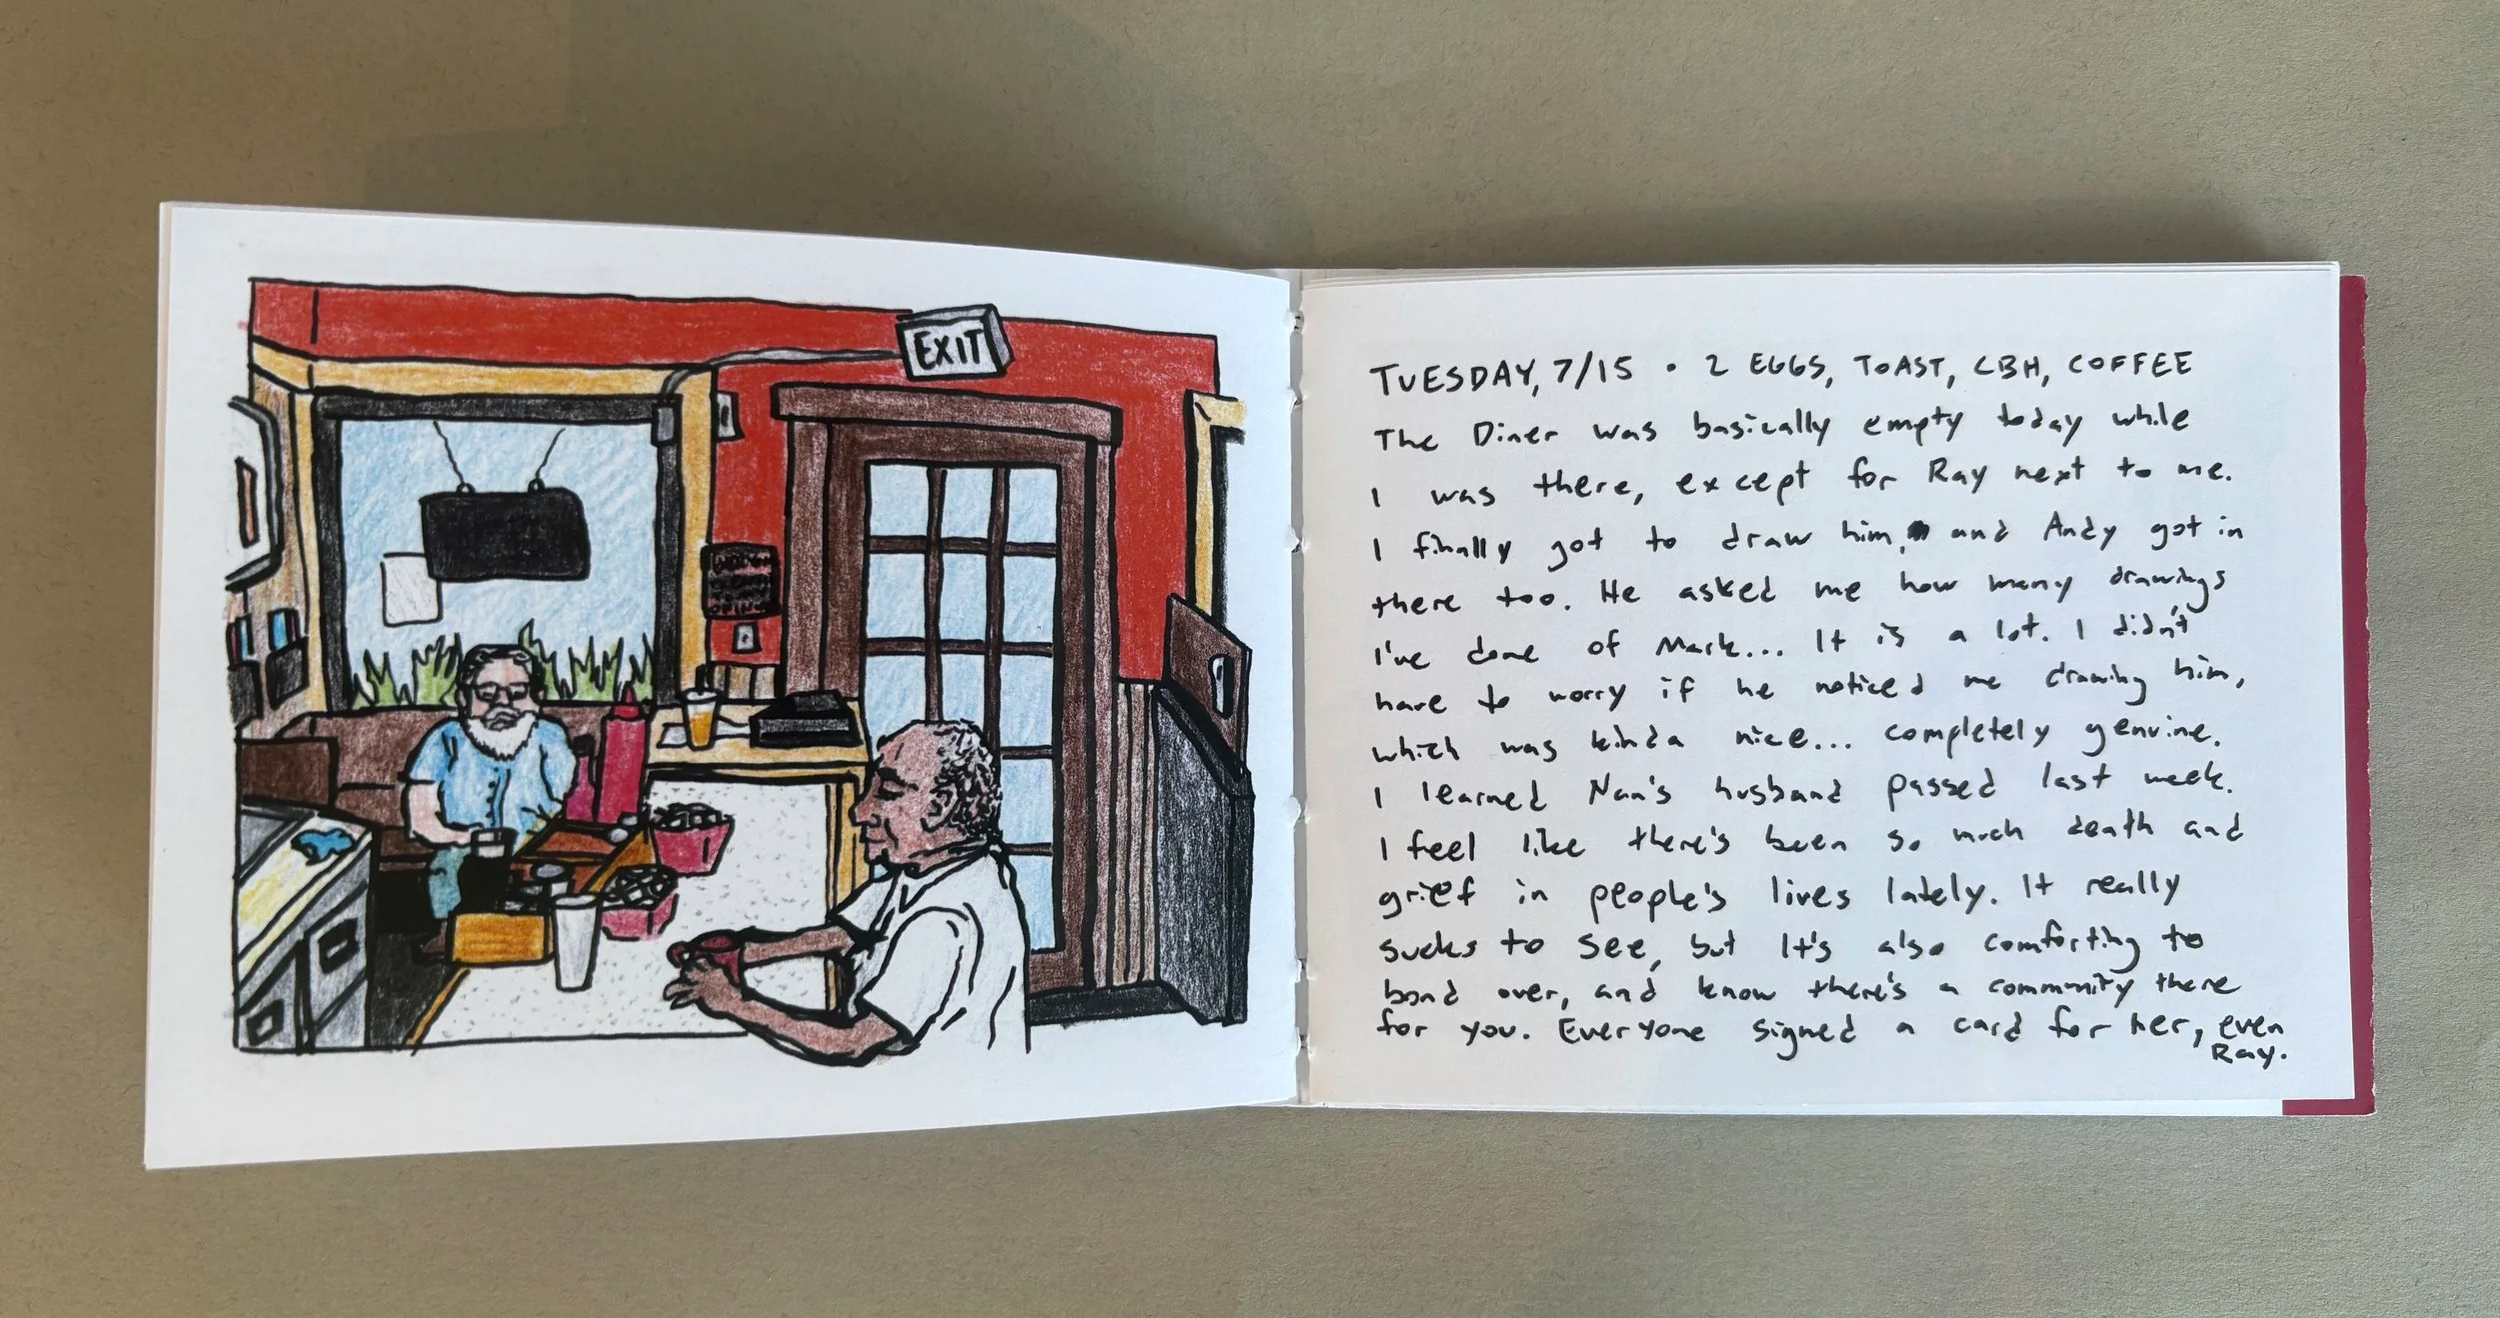 EXIT
TUESDAY, 7/15 • 2 EGGS, TOAST, CBH, COFFEE
The Diner was basically empty today while
I was there, except for Ray next to me.
I finally got to draw him, and Andy got in
there too. He asked me how many drawings
I've done of Mark... It is a lot. I didn't
have to worry if he noticed me drawing him,
which was kinda nice... completely genuine.
I learned Nan's husband passed last week.
I feel like there's been so much death and
grief in people's lives lately. It really
sucks to see, but it's also comforting to
bond over, and know there's a community there
for you. Everyone signed a card for her, even
Ray.